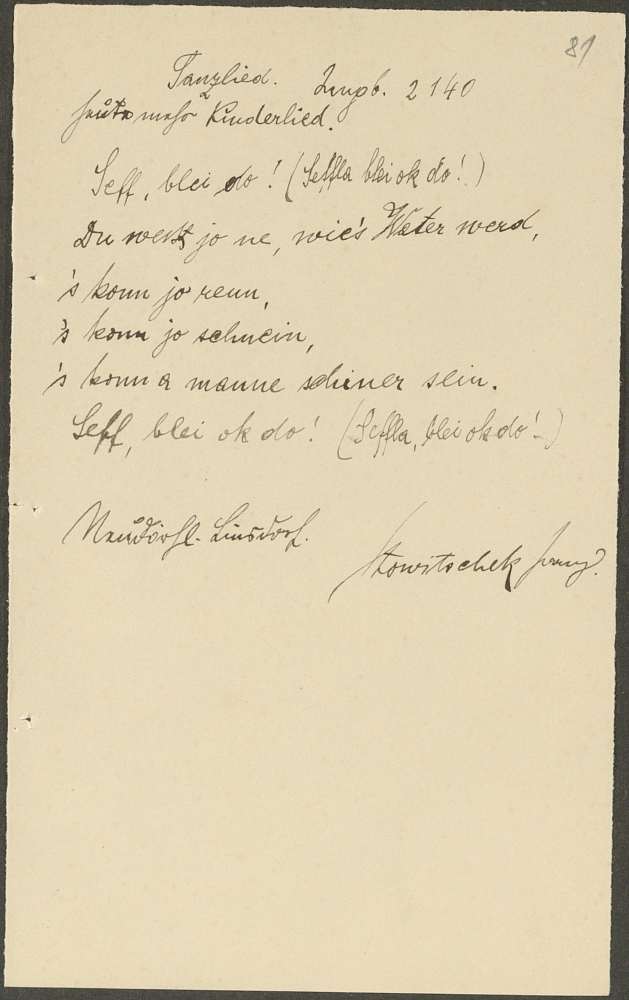 81
Tanzlied. Jungb. 2140
heute mehr Kinderlied.
Seff, blei do! (Seffla blei ok do!)
Du weißt jo ne, wie's Water werd,
's konn jo renn,
's konn jo schnein,
's konn a manne schiener sein.
Seff, blei ok do! (Seffla, blei ok do! -)
Neudörfl. Linsdorf.